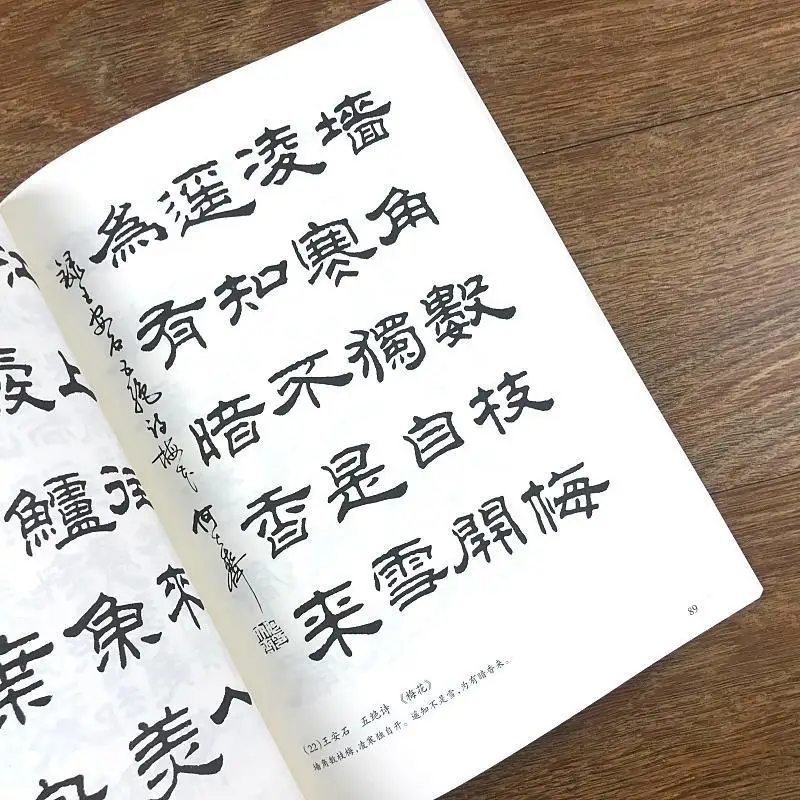 上
鱸魚美
墙角數枝梅
凌寒獨自開
遥知不是雪
為有暗香來
録王安石五绝诗梅花 何大齊
(22)王安石 五绝诗 《梅花》
墙角数枝梅,凌寒独自开。遥知不是雪,为有暗香来。
89